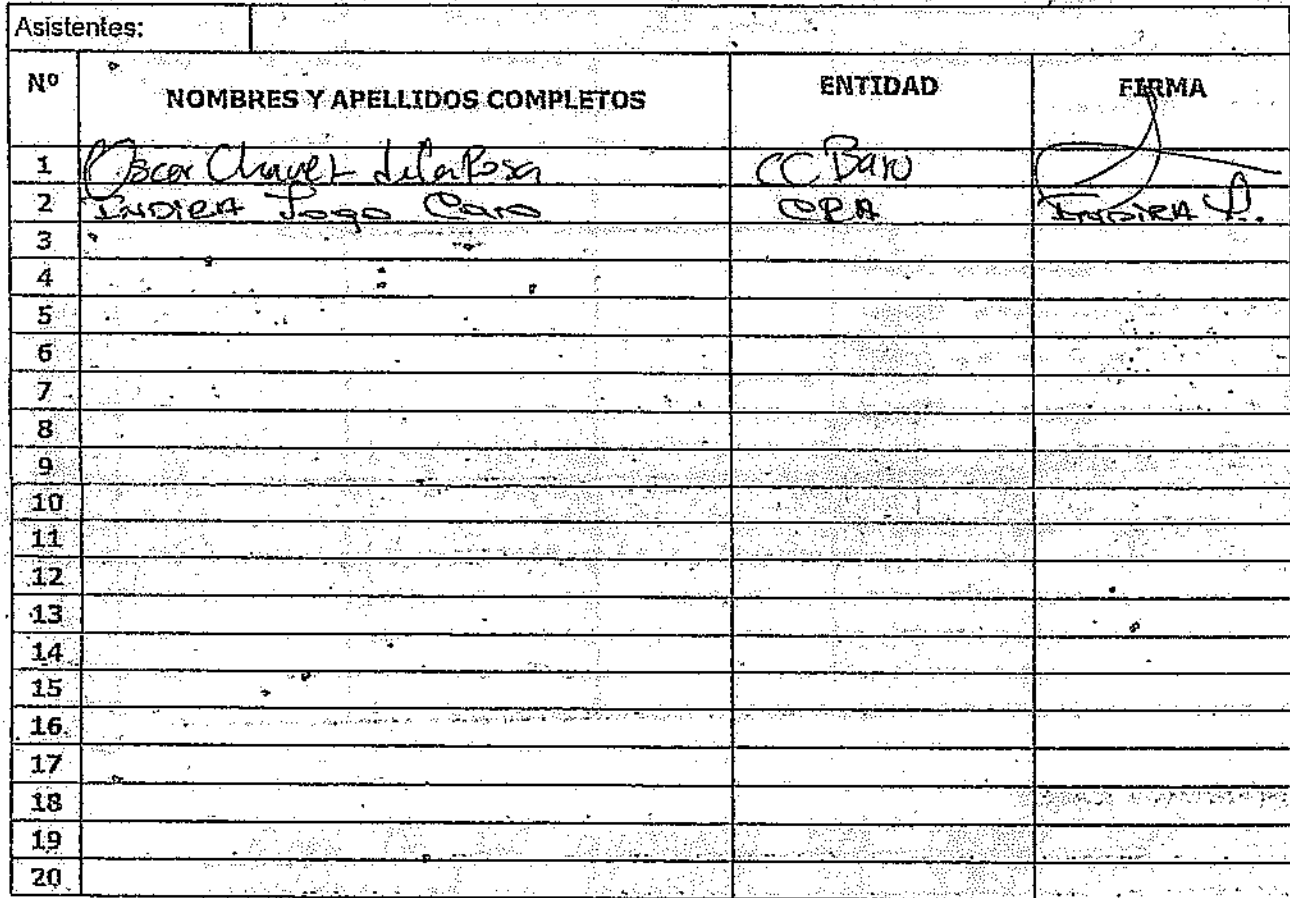 Asistentes:
Nº NOMBRES Y APELLIDOS COMPLETOS ENTIDAD FIRMA
1 Oscar Chavez de la Rosa CC Baru
2 INDIRA Caro INDIRA
3
4
5
6
7
8
9
10
11
12
13
14
15
16
17
18
19
20